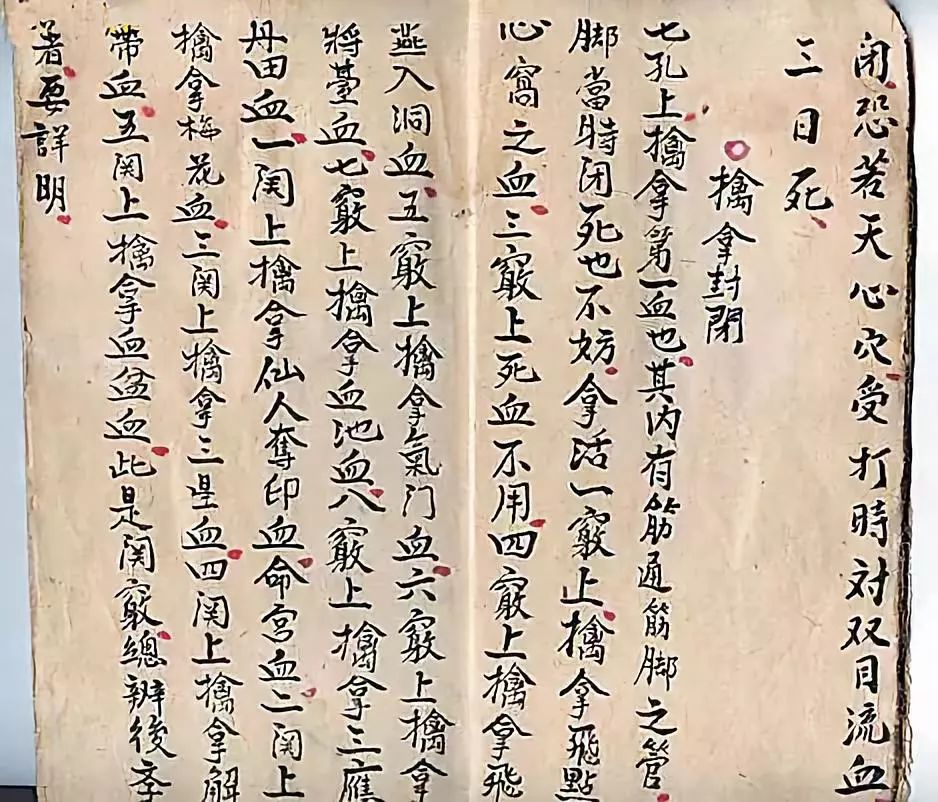 闭恐若天心穴受打時対双目流血
三日死
擒拿封閉
七孔上擒拿第一血也其内有筋通筋脚之管
脚當時闭死也不妨拿活一竅上擒拿飛點
心窩之血三竅上死血不用四竅上擒拿飛
燕入洞血五竅上擒拿氣门血六竅上擒拿
將臺血七竅上擒拿血池血八竅上擒拿三應
丹田血一関上擒拿仙人奪印血命宮血二関上
擒拿梅花血三関上擒拿三星血四関上擒拿解
帶血五関上擒拿血盆血此是関竅總辨後李
著要詳明